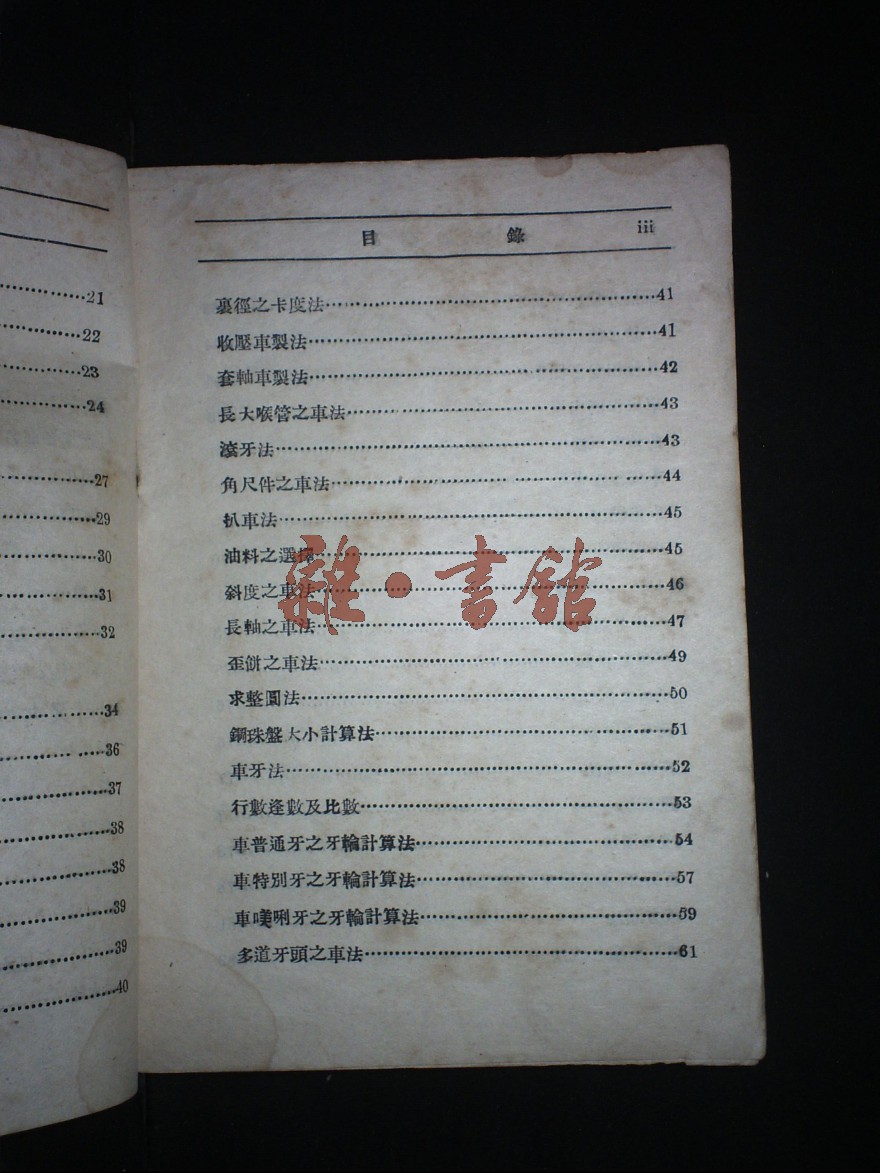 21
22
23
24
27
29
30
31
32
34
36
37
38
38
39
39
40
目 錄 iii
裏徑之卡度法……41
收壓車製法……41
套軸車製法……42
長大喉管之車法……43
滾牙法……43
角尺件之車法……44
扒車法……45
油料之選擇……45
斜度之車法……46
長軸之車法……47
歪餅之車法……49
求整圓法……50
鋼珠盤大小計算法……51
車牙法……52
行數逢數及比數……53
車普通牙之牙輪計算法……54
車特別牙之牙輪計算法……57
車嘆唎牙之牙輪計算法……59
多道牙頭之車法……61
雜·書館